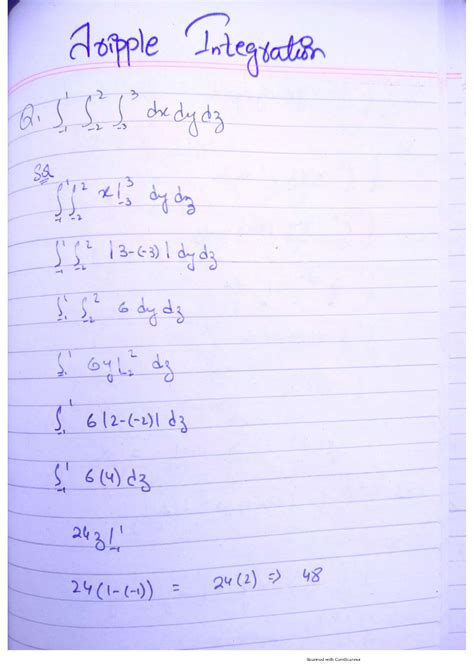 Tripple Integration
Q. ∫₋₁¹ ∫₋₂² ∫₋₃³ dx dy dz
Sol
∫₋₁¹ ∫₋₂² x|₋₃³ dy dz
∫₋₁¹ ∫₋₂² |3-(-3)| dy dz
∫₋₁¹ ∫₋₂² 6 dy dz
∫₋₁¹ 6y|₋₂² dz
∫₋₁¹ 6|2-(-2)| dz
∫₋₁¹ 6(4) dz
24z|₋₁¹
24(1-(-1)) = 24(2) => 48
Scanned with CamScanner